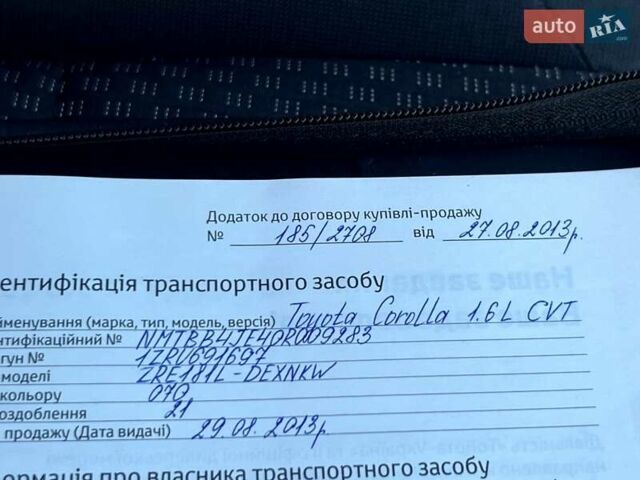 auto RIA .com
Додаток до договору купівлі-продажу
№ 185/2708 від 27.08.2013р.
ентифікація транспортного засобу
йменування (марка, тип, модель, версія) Toyota Corolla 1.6L CVT
нтифікаційний № NMTBB4JE40R009283
гун № 1ZRU691697
моделі ZRE181L-DEXNKW
кольору 070
оздоблення 21
продажу (Дата видачі) 29.08.2013р.
ормація про власника транспортного засобу